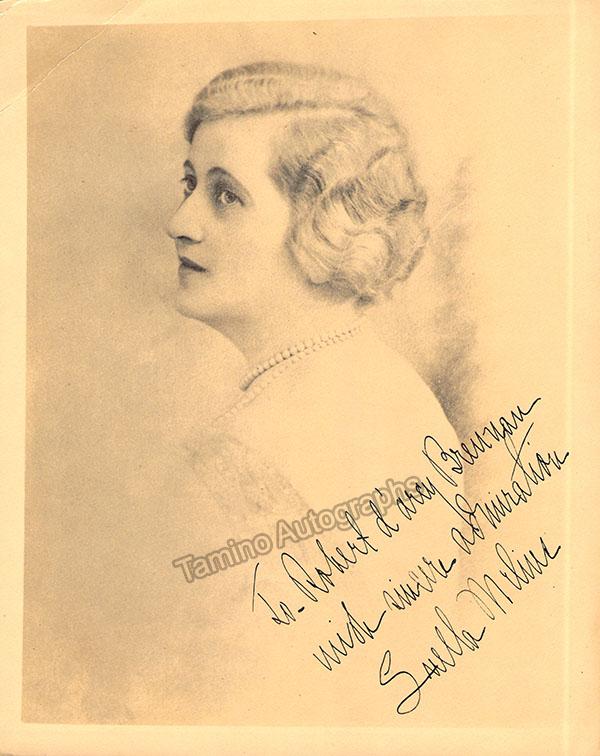 To-Robert d'arcy Brennan
with sincere admiration
Luella Melius
Tamino Autographs